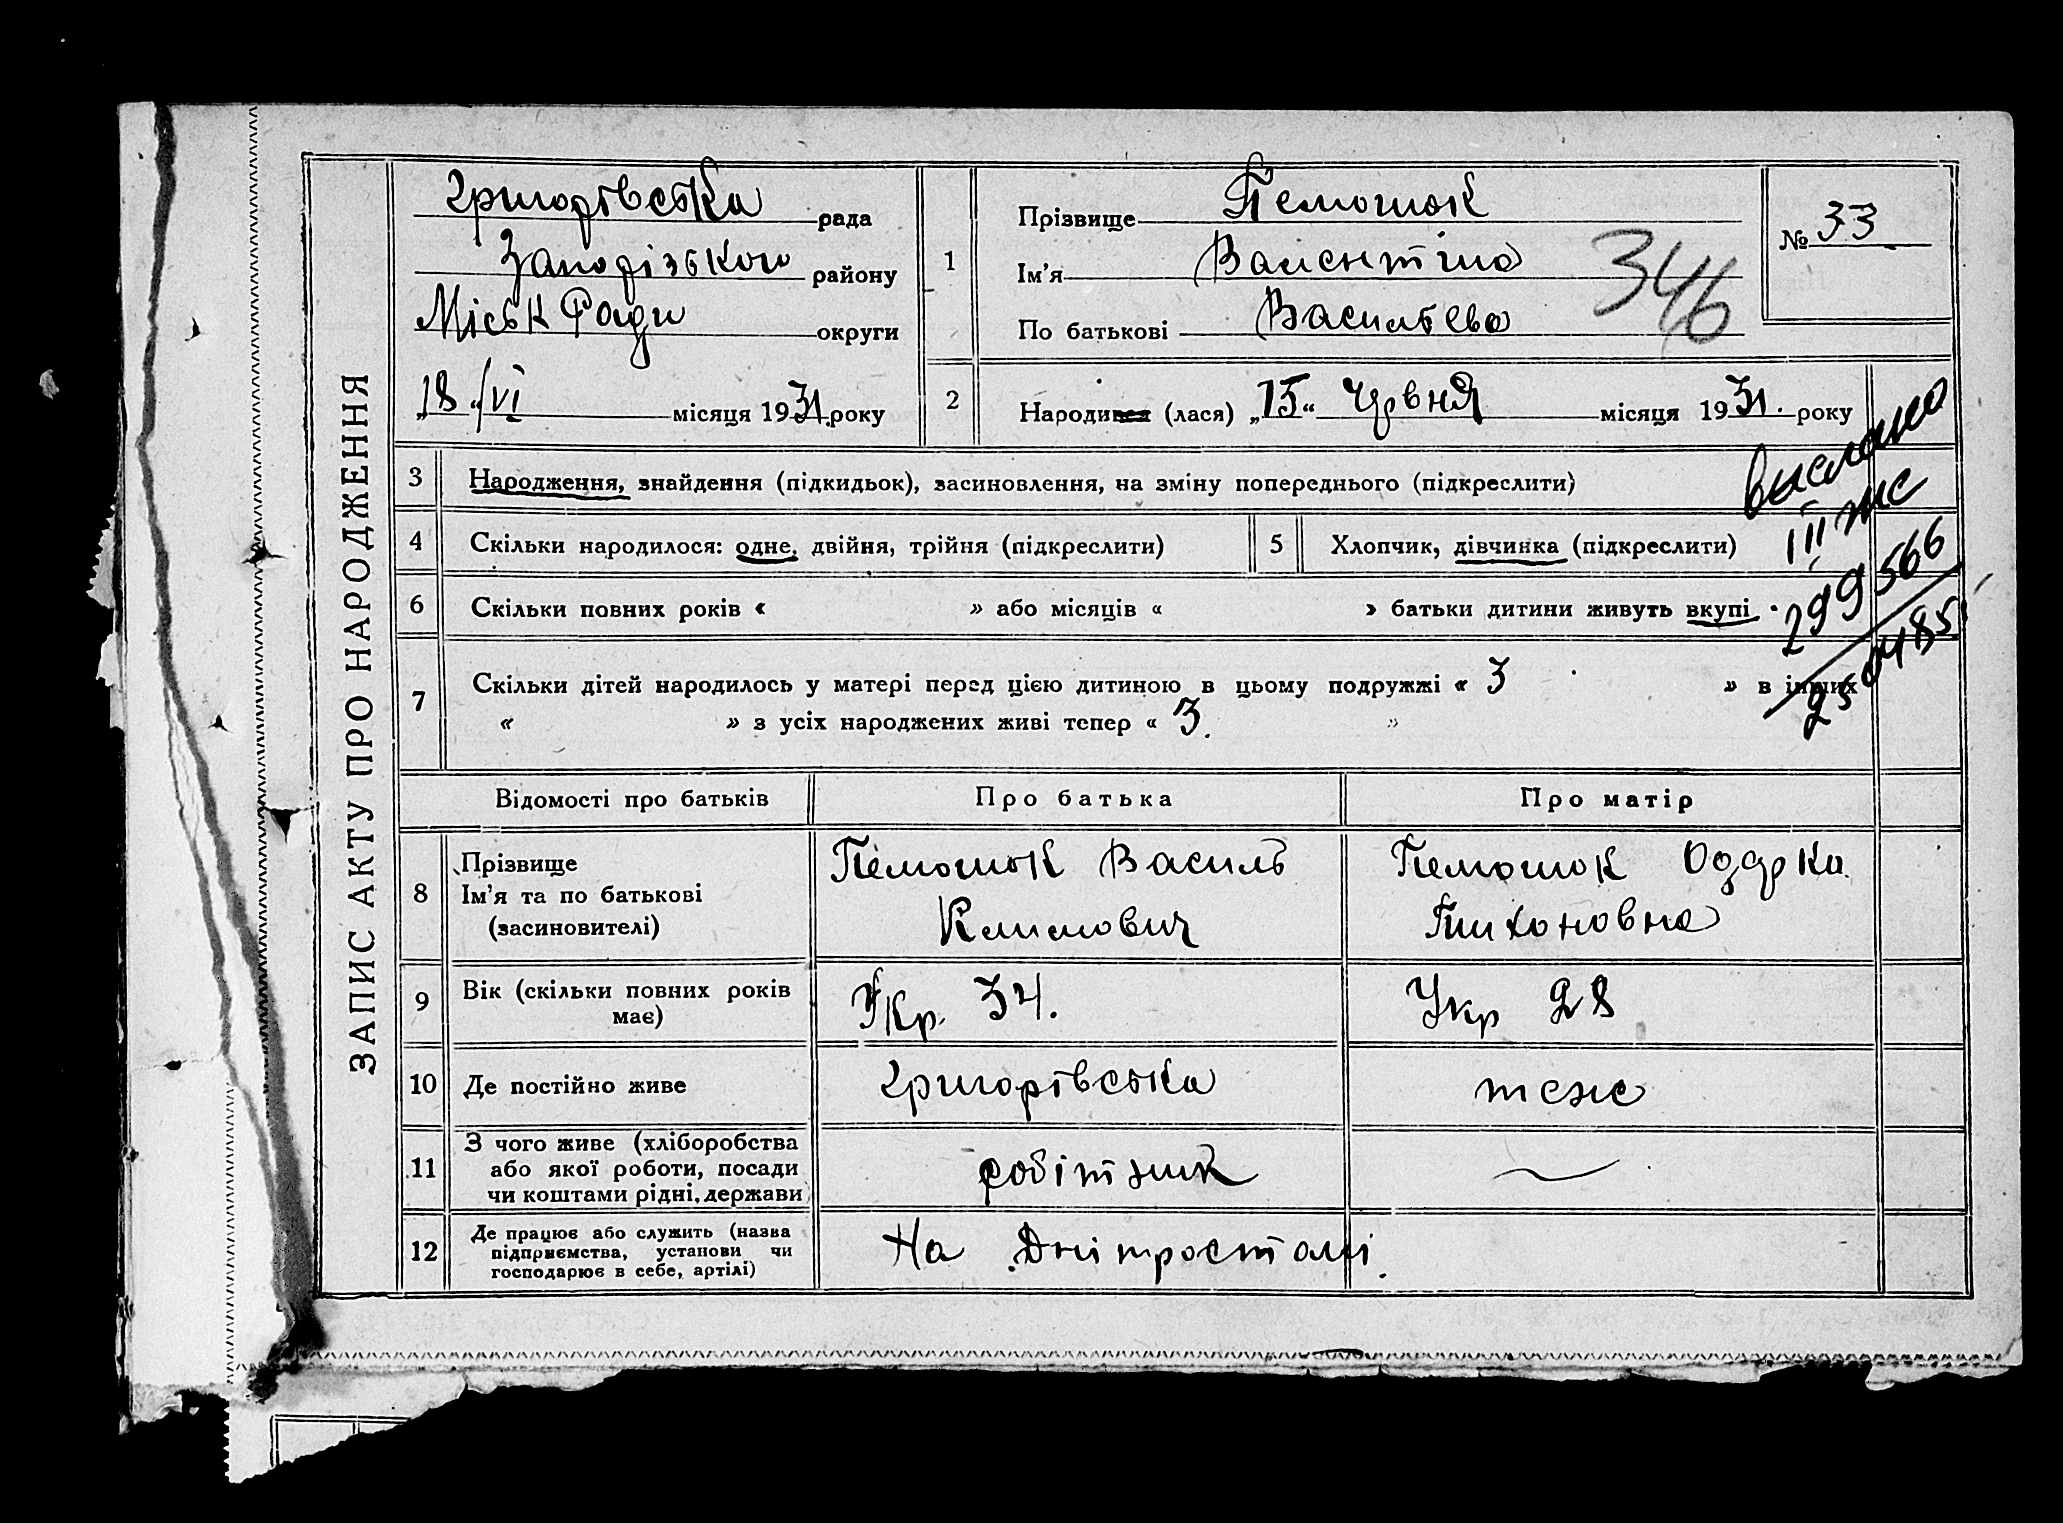 ЗАПИС АКТУ ПРО НАРОДЖЕННЯ
Григорівська рада
Запорізького району
Міськ Ради округи
„18“/VI місяця 1931. року
1
Прізвище
Ім'я Валентіна
По батькові Василівна
346
№ 33
2
Народився (лася) „15“ Червня місяця 1931. року
3 Народження, знайдення (підкидьок), засиновлення, на зміну попереднього (підкреслити)
4 Скільки народилося: одне, двійня, трійня (підкреслити)
5 Хлопчик, дівчинка (підкреслити)
6 Скільки повних років « » або місяців « » батьки дитини живуть вкупі
7 Скільки дітей народилось у матері перед цією дитиною в цьому подружжі « 3 » в інших
« » з усіх народжених живі тепер « 3. »
выслано
III жс
299566
250485
Відомості про батьків
Про батька
Про матір
8 Прізвище
Ім'я та по батькові
(засиновителі)
Василь
Климович
Одарка
Тихоновна
9 Вік (скільки повних років
має)
Укр. 34.
Укр 28
10 Де постійно живе
Григорівська
теж
11 З чого живе (хліборобства
або якої роботи, посади
чи коштами рідні, держави
робітник
12 Де працює або служить (назва
підприємства, установи чи
господарює в себе, артілі)
На Дніпросталі.